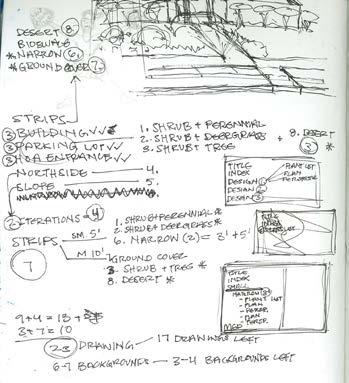 DESERT 8.
SIDEWALK
* NARROW 6.
* GROUND COVER 7.
STRIPS
3 BUILDING ✓✓
3 PARKING LOT ✓✓
3 HOA ENTRANCE ✓✓
1. SHRUB + PERENNIAL
2. SHRUB + DEERGRASS + 8. DESERT
3. SHRUB TREE
3 *
NORTHSIDE 4.
SLOPE 5.
TITLE
INDEX
DESIGN 1
DESIGN 2
DESIGN 3
PLANT LIST
PLAN
PERSPECTIVE
2 ITERATIONS = 4
STRIPS SM. 5'
M 10'
7
1. SHRUB + PERENNIAL *
2. SHRUB + DEERGRASS *
6. NARROW (2) = 3' + 5'
GROUND COVER
3. SHRUB + TREE *
8. DESERT *
TITLE
INDEX
TITLE
INDEX
SMALL
NARROW
- PLANT LIST
- PLAN
- PERSP.
- PLAN
- PERSP.
MED
9 + 4 = 13 +
3 + 7 = 10
23 DRAWING — 17 DRAWINGS LEFT
6-7 BACKGROUNDS — 3-4 BACKGROUNDS LEFT